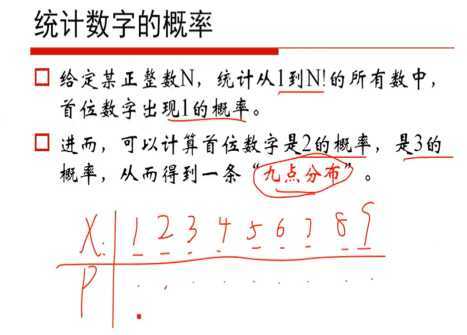 统计数字的概率
□ 给定某正整数N，统计从1到N!的所有数中，
首位数字出现1的概率。
□ 进而，可以计算首位数字是2的概率，是3的
概率，从而得到一条“九点分布”。
X: 1 2 3 4 5 6 7 8 9
P